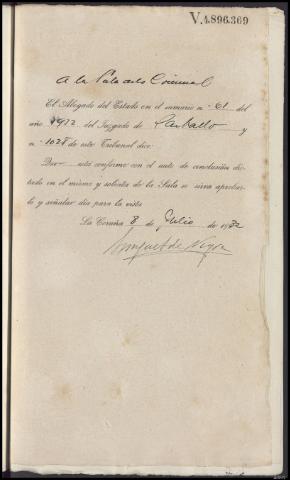 V.4.896.369
A la Sala de lo Criminal
El Abogado del Estado en el sumario n.º 61 del
año 1932 del Juzgado de Carballo y
n.º 1028 de este Tribunal dice:
Que está conforme con el auto de conclusión dic-
tado en el mismo y solicita de la Sala se sirva aprobar-
lo y señalar día para la vista
La Coruña 8 de Julio de 1932